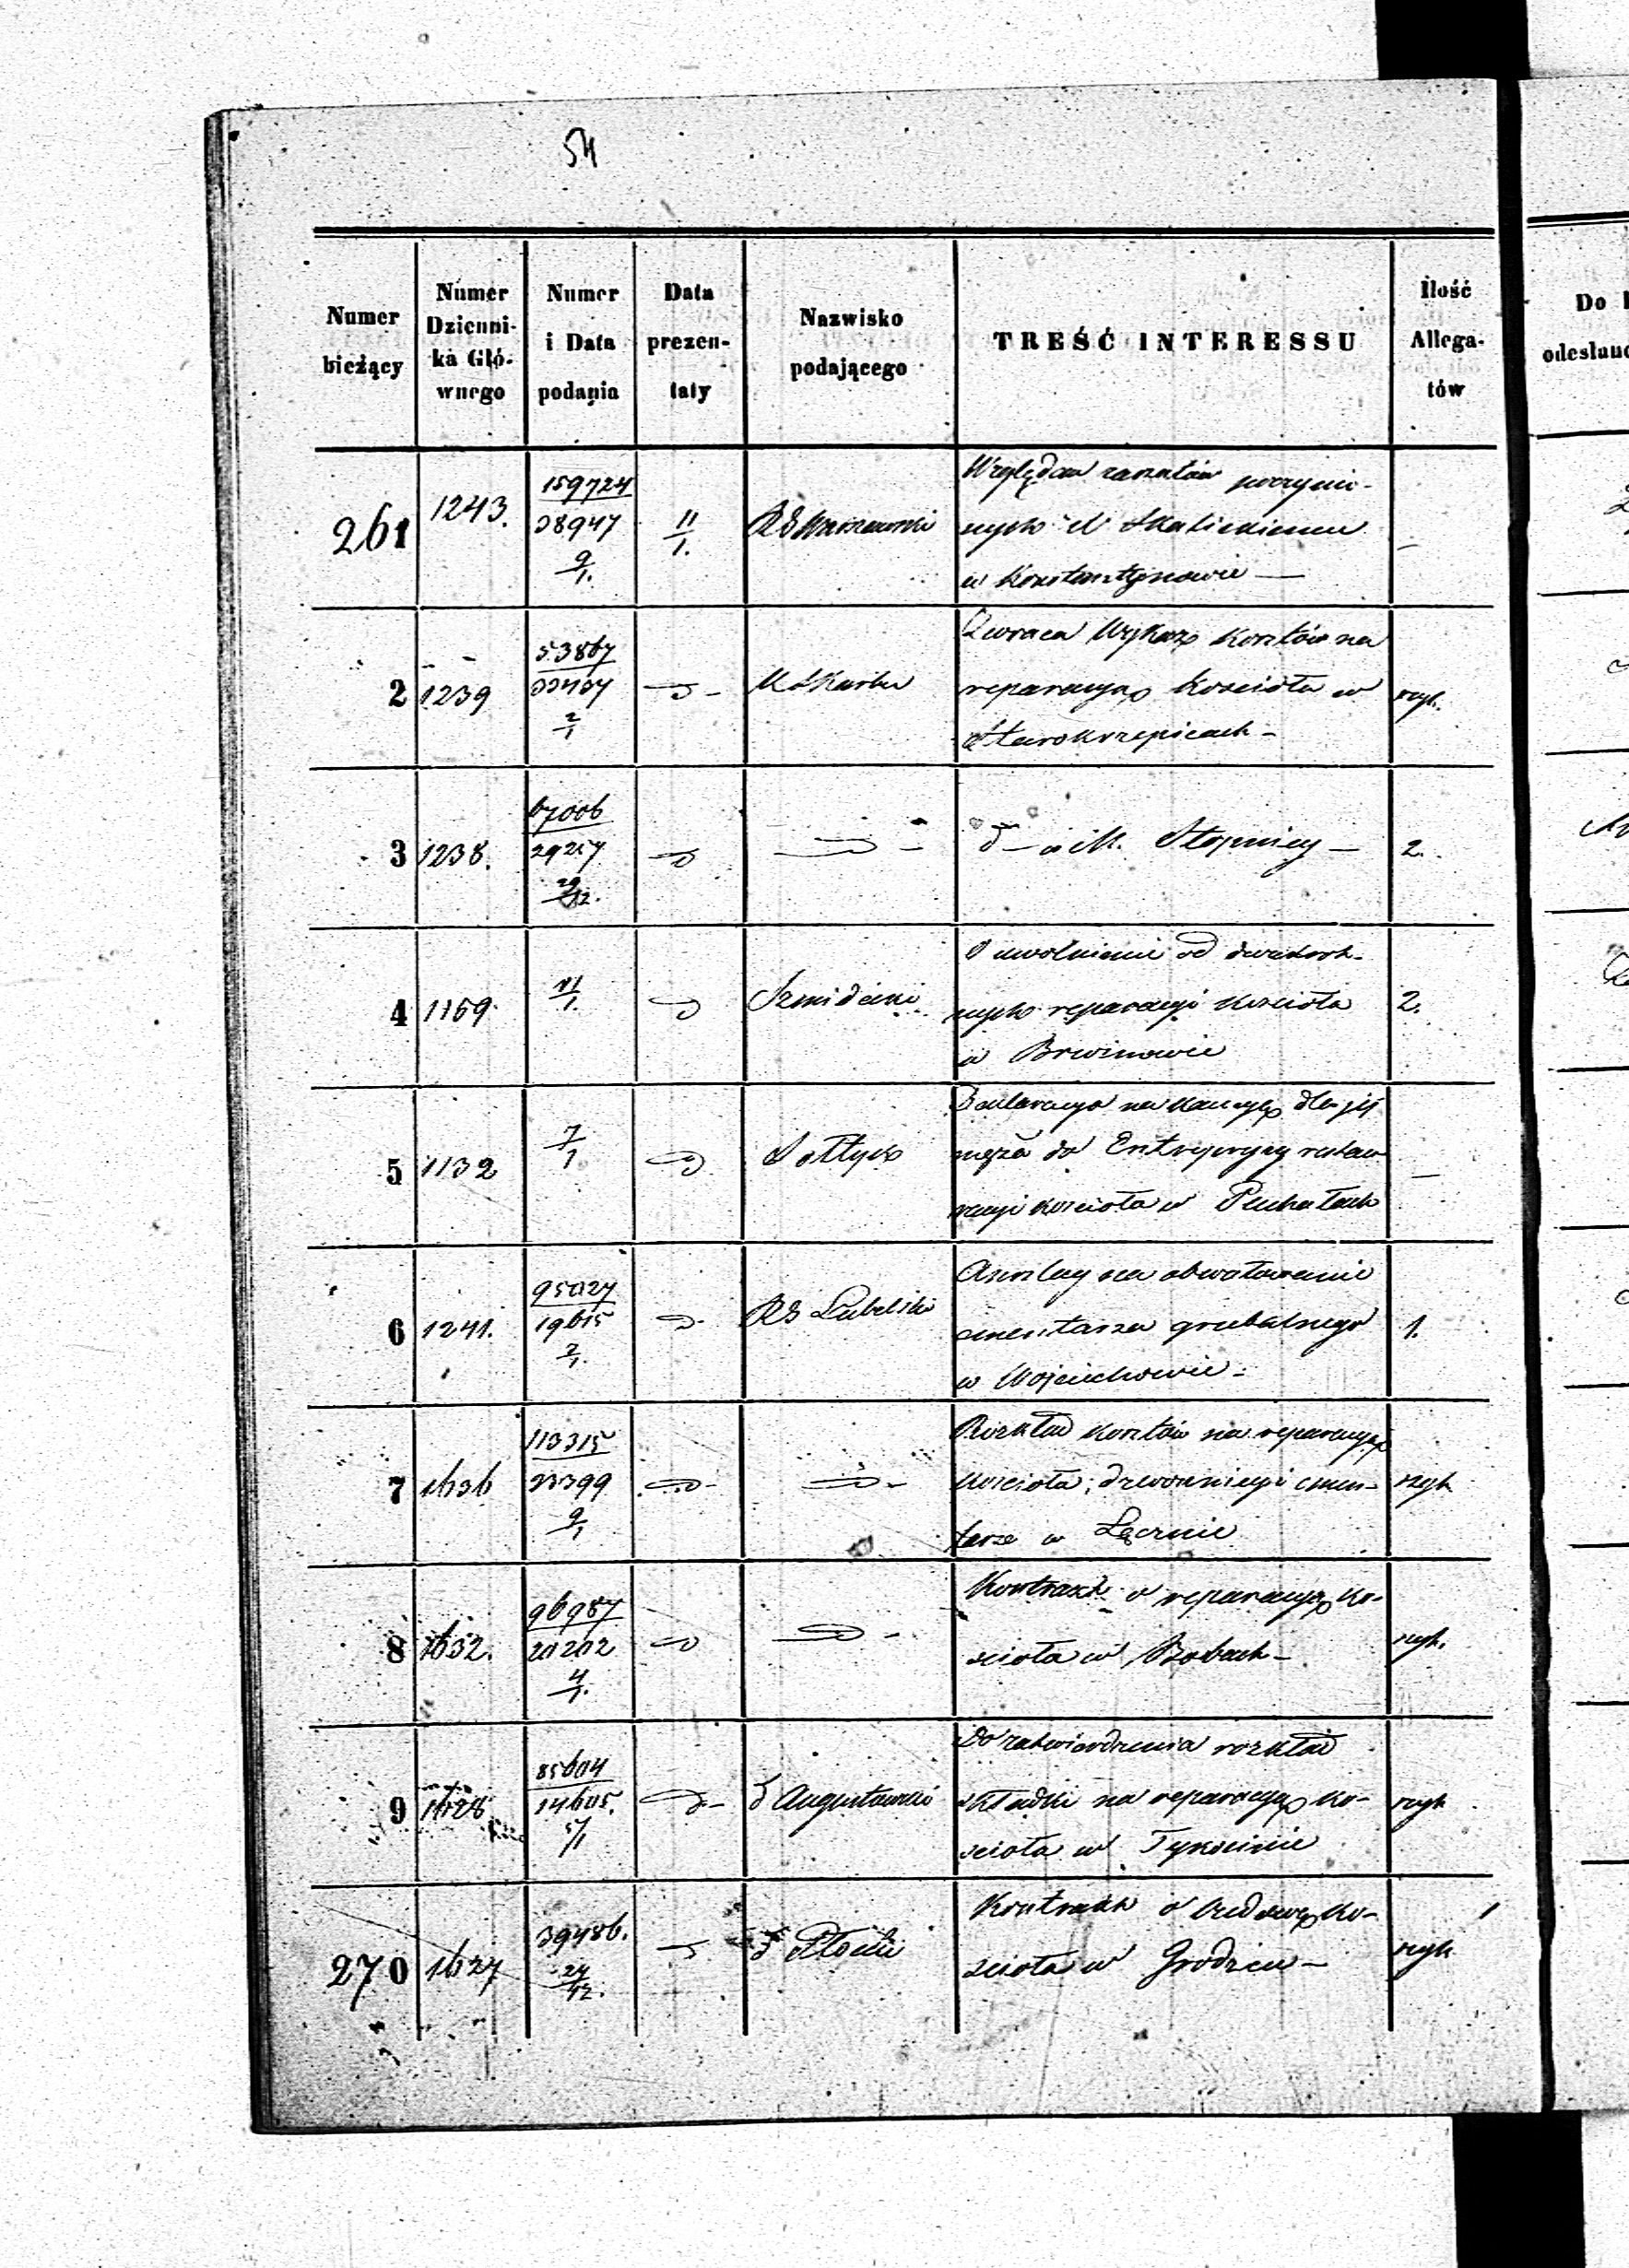 54
Numer bieżący
Numer Dzienni- ka Głó- wnego
Numer i Data podania
Data prezen- taty
Nazwisko podającego
TREŚĆ INTERESSU
Ilość Allega- tów
Do
odesłano
261 1243. 159724 38947 9/1. 11/1. RG Warszawski
Względem zarzutów poczynio-
nych
w Konstantynowie —
2 1239 53867 33404 2/1 Skarbu
Zwraca Wykaz kosztów na
reparacyą Kościoła w
Starokrzepicach - szyk.
3 1238. 67006 29257 29/12.
d - w M. Stopnicy — 2.
4 1159 11/1.
O uwolnienie od dwukrot-
nych reparacyi Kościoła 2.
w Brwinowie
5 1132 7/1 Sołtyk
Deklaracya na kaucyę dla jej
męża do Entrepryzy restau-
racyi kościoła w Puchałach
6 1241. 95027 19615 7/1. RG Lubelski
Anszlag na obwałowanie
cmentarza grzebalnego 1.
w Wojciechowie -
7 1636 113315 23399 9/1
Rozkład kosztów na reparacyą
kościoła, dzwonnicy i cmen- szyk
tarza w Łęcznie
8 1632. 96987 20202 4/1.
Kontrakt o reparacyą ko-
ścioła w Bobach - szyk.
9 1628 85604 14605. 5/1 d Augustowski
Do zatwierdzenia rozkład
składki na reparacyą ko- szyk
ścioła w Tykocinie
270 1627 39486. 24/12. d Płocki
Kontrakt o budowę ko-
ścioła w Grodzcu - szyk